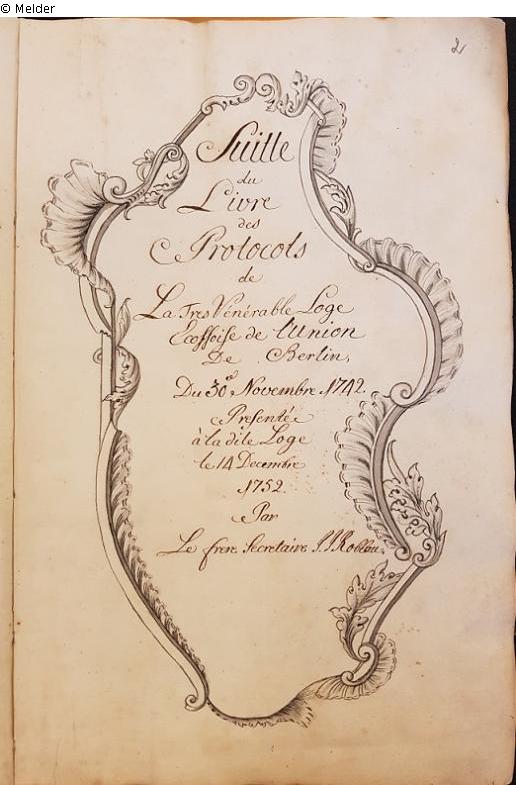 © Melder
2
Suitte
du
Livre
des
Protocols
de
La Tres Vénérable Loge
Ecossoise de l'Union
De Berlin,
Du 30 Novembre 1742.
Presenté
à la dite Loge
le 14 Decembre
1752.
Par
Le frere Secretaire